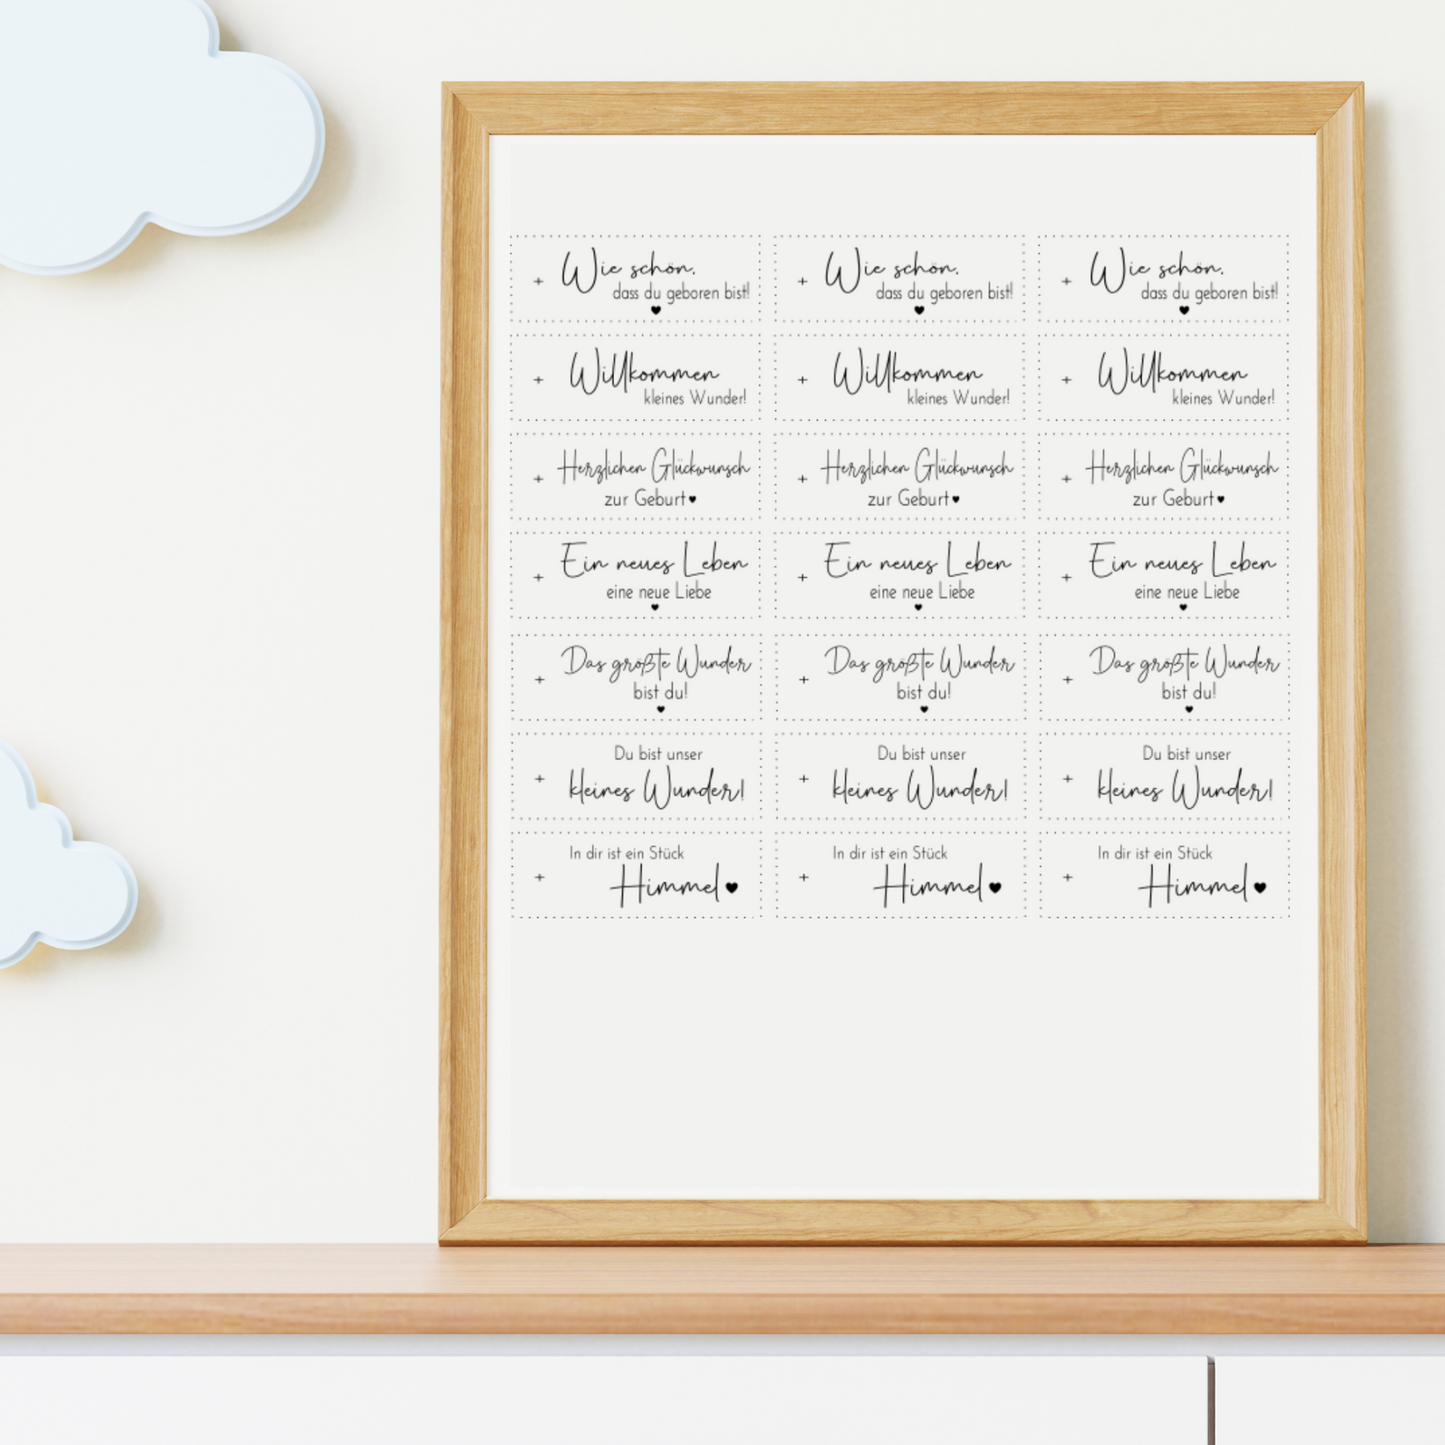 + Wie schön, + Wie schön, + Wie schön,
dass du geboren bist! dass du geboren bist! dass du geboren bist!
♥ ♥ ♥
+ Willkommen + Willkommen + Willkommen
kleines Wunder! kleines Wunder! kleines Wunder!
+ Herzlichen Glückwunsch + Herzlichen Glückwunsch + Herzlichen Glückwunsch
zur Geburt♥ zur Geburt♥ zur Geburt♥
+ Ein neues Leben + Ein neues Leben + Ein neues Leben
eine neue Liebe eine neue Liebe eine neue Liebe
♥ ♥ ♥
+ Das größte Wunder + Das größte Wunder + Das größte Wunder
bist du! bist du! bist du!
♥ ♥ ♥
Du bist unser Du bist unser Du bist unser
+ kleines Wunder! + kleines Wunder! + kleines Wunder!
In dir ist ein Stück In dir ist ein Stück In dir ist ein Stück
+ Himmel♥ + Himmel♥ + Himmel♥